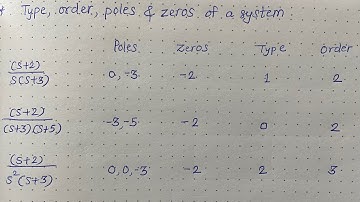 Type, order, poles & zeros of a system:
Poles Zeros Type Order
(s+2)/s(s+3) 0, -3 -2 1 2
(s+2)/(s+3)(s+5) -3, -5 -2 0 2
(s+2)/s²(s+3) 0, 0, -3 -2 2 3